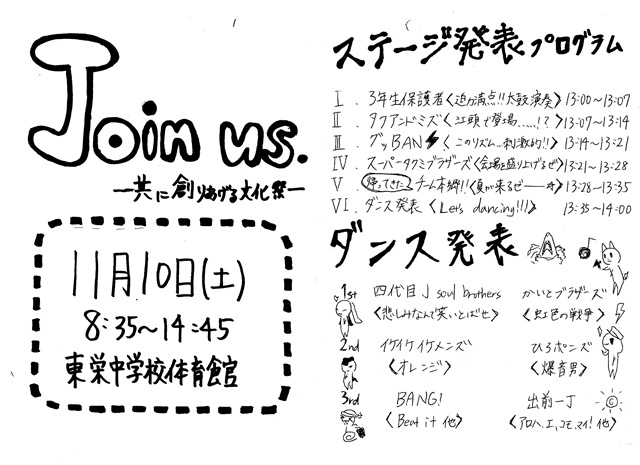 Join us.
―共に創りあげる文化祭―
11月10日(土)
8:35~14:45
東栄中学校体育館
ステージ発表プログラム
I. 3年生保護者〈迫力満点!!太鼓演奏〉13:00~13:07
II. タクアンドミズ〈江頭で登場……!?〉13:07~13:14
III. グッBAN〈このリズム…刺激的!!〉13:14~13:21
IV. スーパータクミブラザーズ〈会場を盛り上げるぜ〉13:21~13:28
V 帰ってきた チーム本郷!!〈夏が来るぜー☆〉13:28~13:35
VI. ダンス発表〈Let's dancing!!!〉13:35~14:00
ダンス発表
1st 四代目 J soul brothers かいとブラザーズ
〈悲しみなんて笑いとばせ〉〈虹色の戦争〉
2nd イケイケイケメンズ ひろポンズ
〈オレンジ〉〈爆音男〉
3rd BANG! 出前一丁
〈Beat it 他〉〈アロハ.エ.コモ.マイ! 他〉